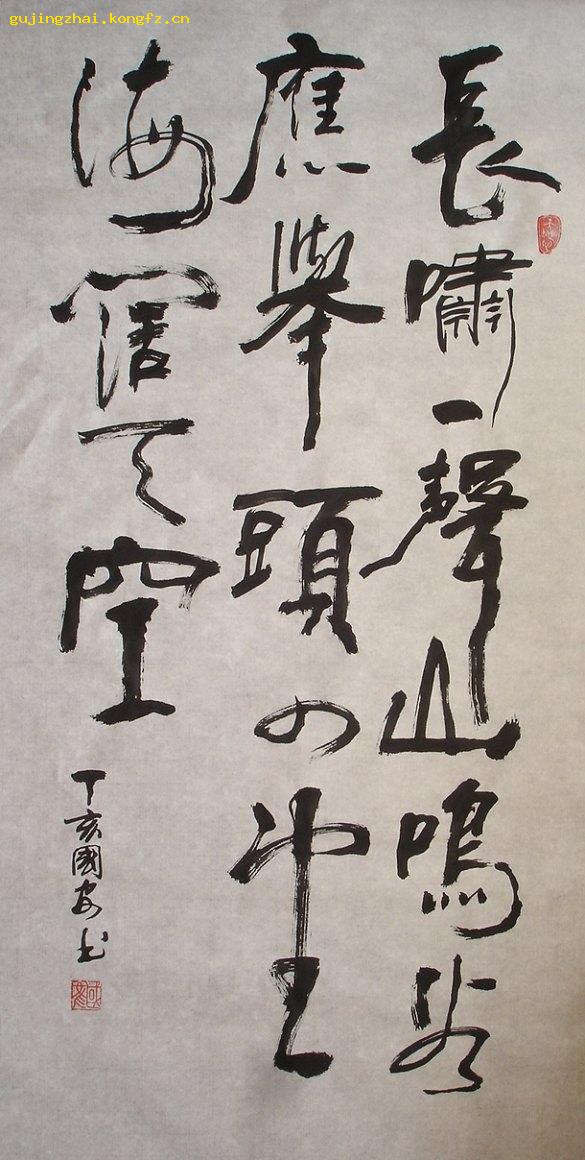 gujingzhai.kongfz.cn
長嘯一聲山鳴谷
應舉頭四望
海闊天空
丁亥國安书